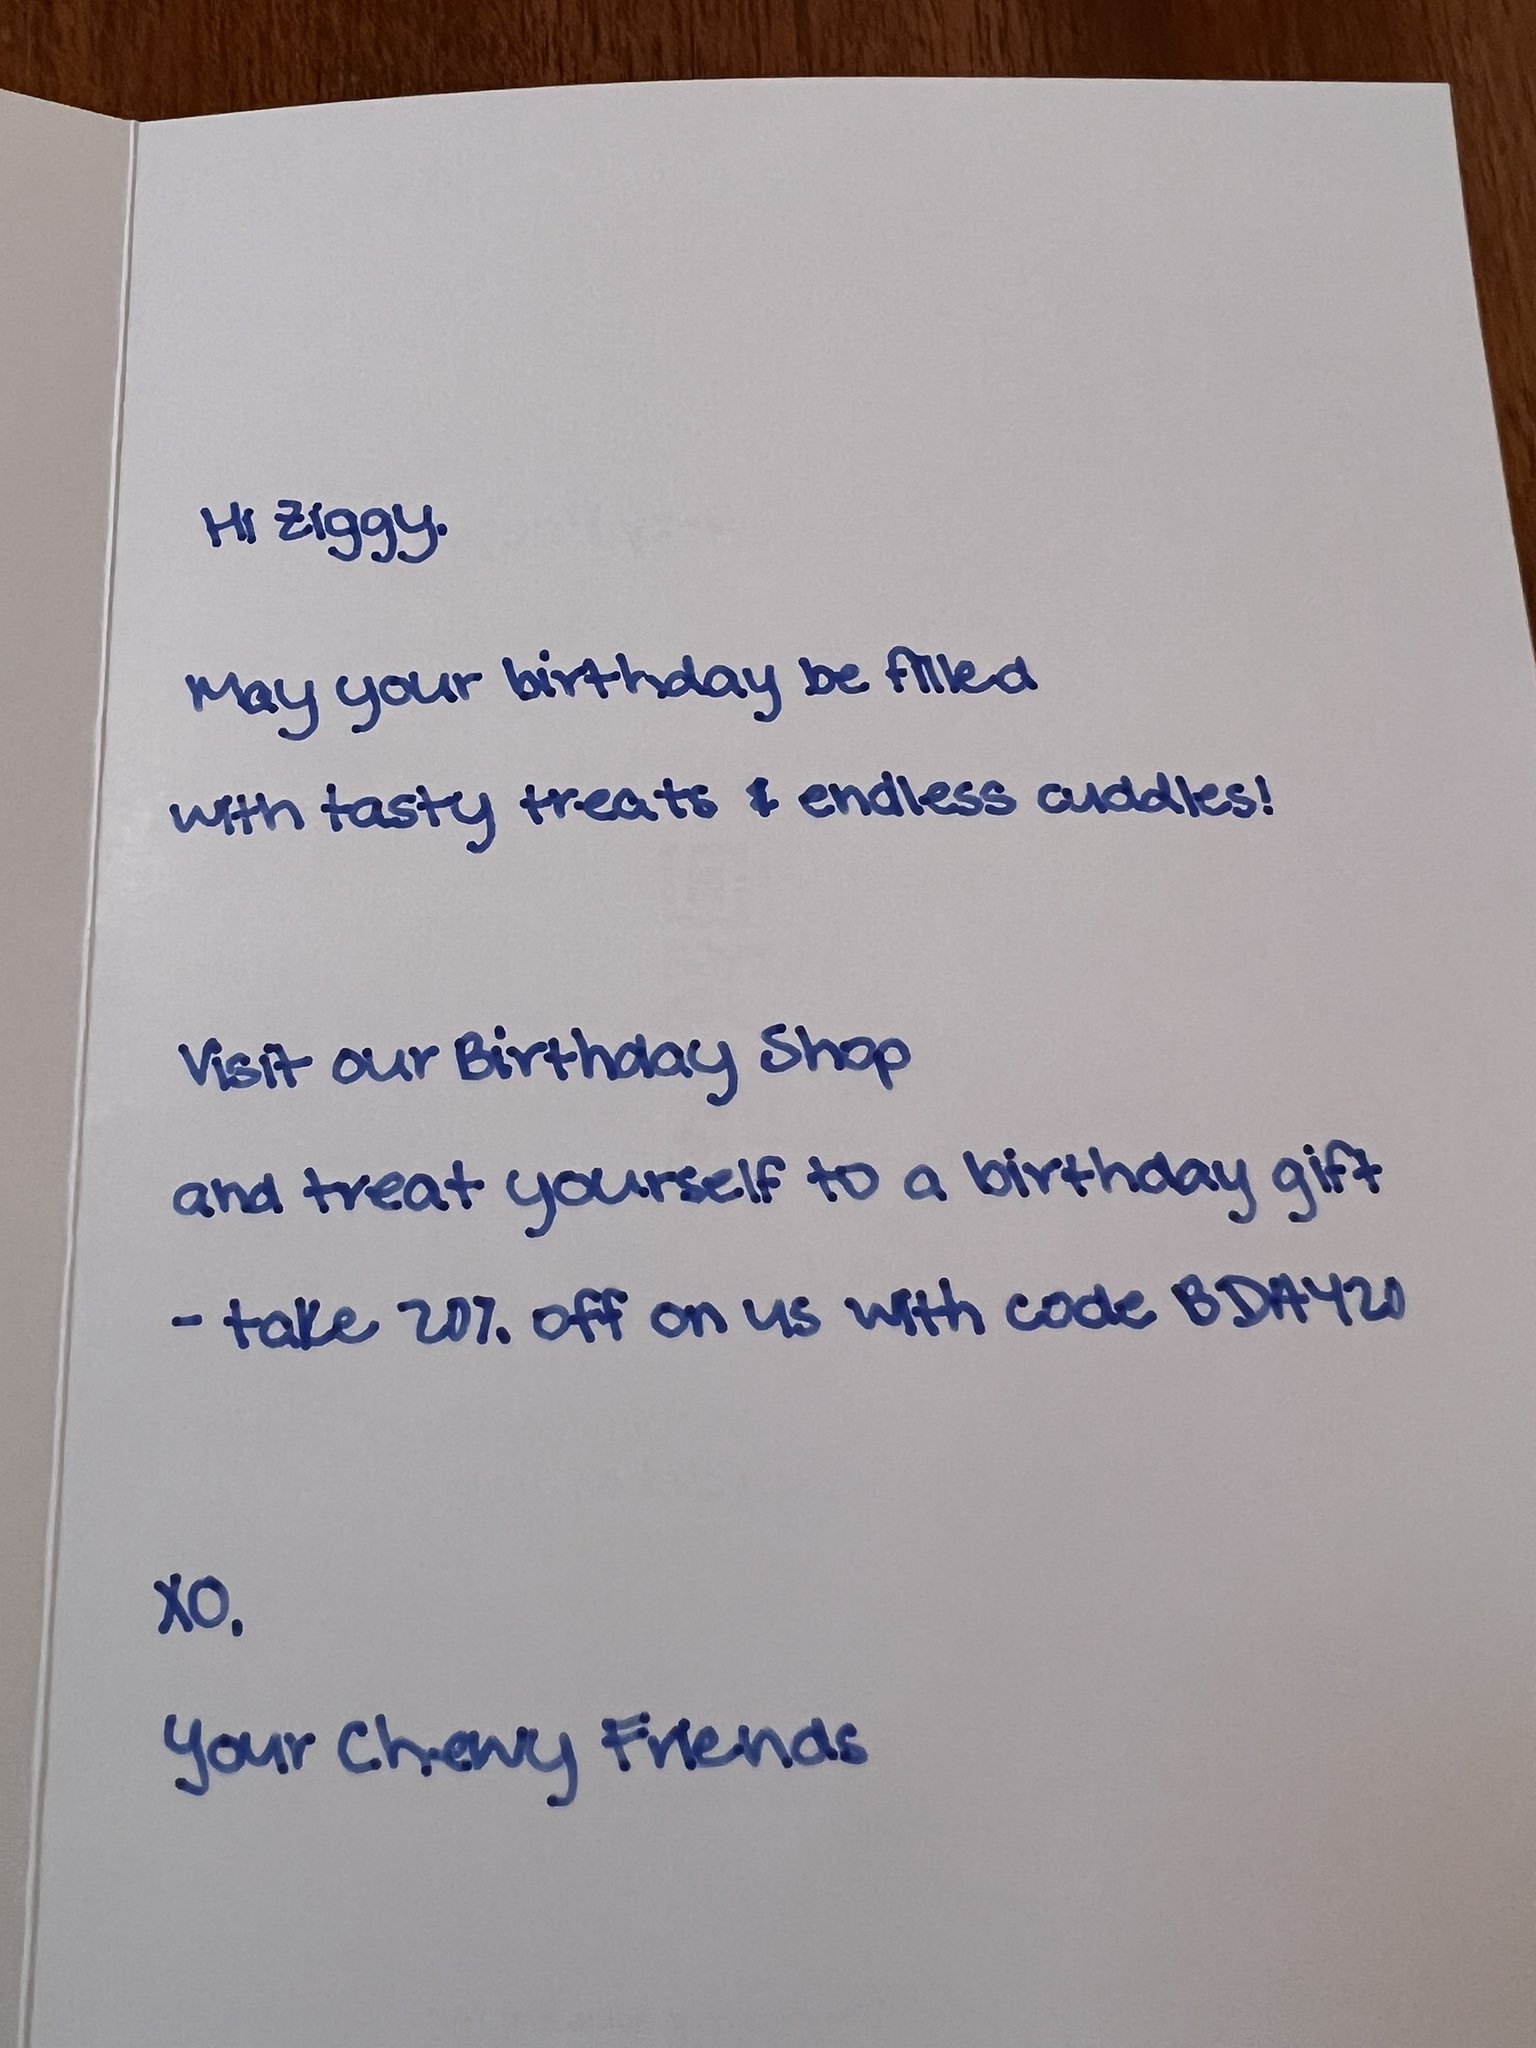 Hi Ziggy.
May your birthday be filled
with tasty treats & endless cuddles!
Visit our Birthday Shop
and treat yourself to a birthday gift
- take 20% off on us with code BDAY20
XO,
Your Chewy Friends